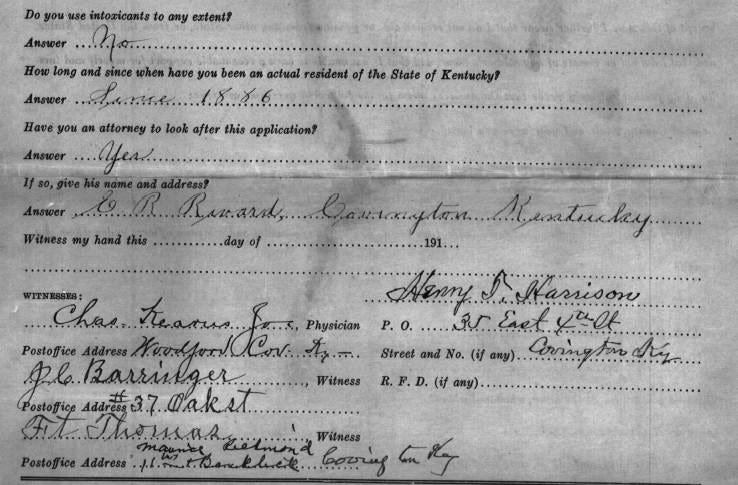 Do you use intoxicants to any extent?
Answer ....No
How long and since when have you been an actual resident of the State of Kentucky?
Answer ...Since 1886
Have you an attorney to look after this application?
Answer ....Yes
If so, give his name and address?
Answer ..E R Rivard, Covington Kentucky
Witness my hand this ............day of ............................191...
Henry T. Harrison
WITNESSES:
Chas. Kearns Jr., Physician P. O. 35 East 4th St
Postoffice Address Woodford Cov. Ky Street and No. (if any) Covington Ky
J C Barringer, Witness R. F. D. (if any)
Postoffice Address #37 Oak st
Ft Thomas, Witness
Maurice Richmond
Postoffice Address Covington Ky